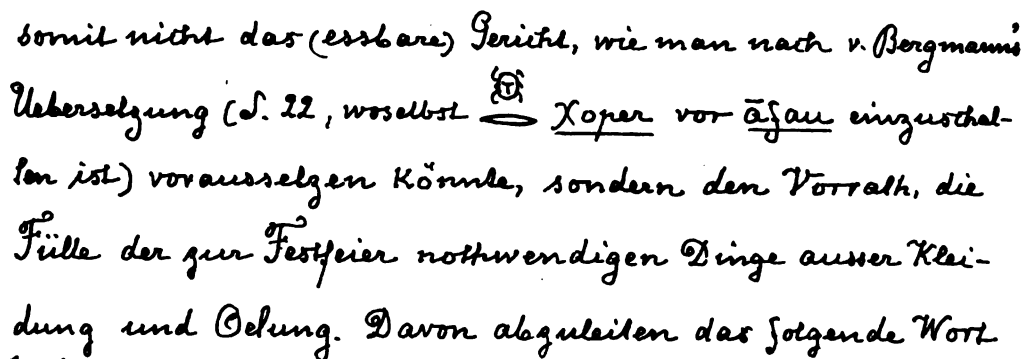 somit nicht das (essbare) Gericht, wie man nach v. Bergmann's
Uebersetzung (S. 22, woselbst 𓆣𓂋 Xoper vor āfau einzuschal-
ten ist) voraussetzen könnte, sondern den Vorrath, die
Fülle der zur Festfeier nothwendigen Dinge ausser Klei-
dung und Oelung. Davon abzuleiten das folgende Wort